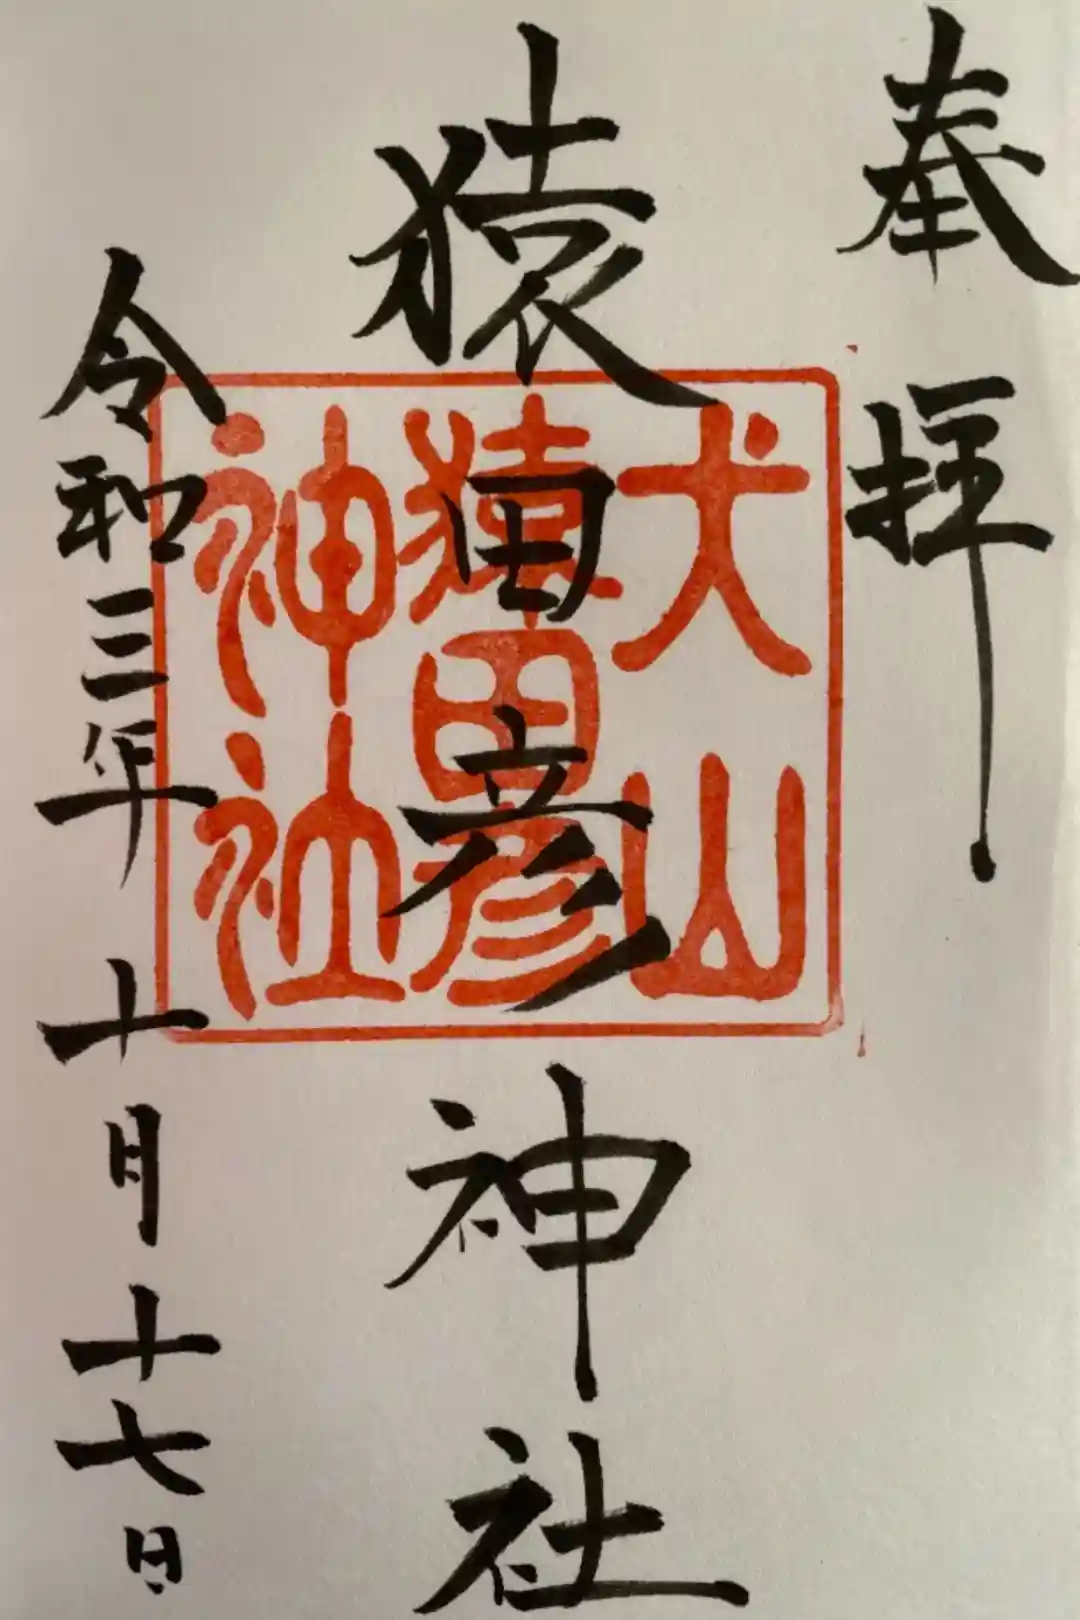 奉拝
猿田彦神社
犬山
猿田彦
神社
令和三年十月十七日